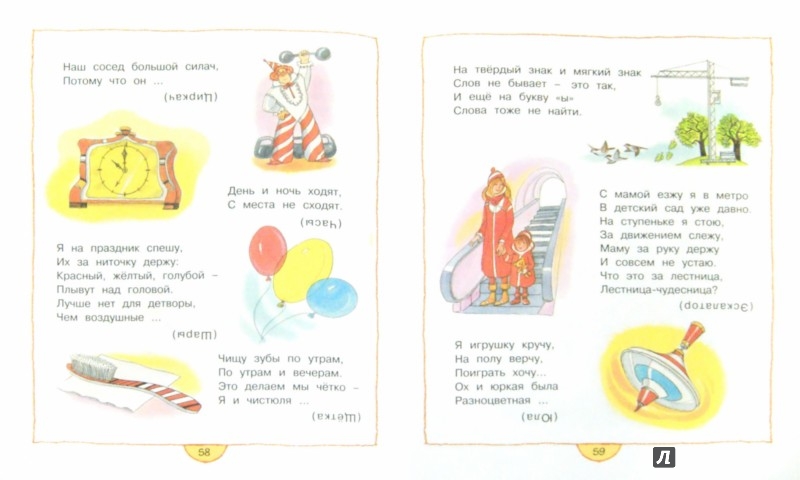 Наш сосед большой силач,
Потому что он ...
(Циркач)
День и ночь ходят,
С места не сходят.
(Часы)
Я на праздник спешу,
Их за ниточку держу:
Красный, жёлтый, голубой –
Плывут над головой.
Лучше нет для детворы,
Чем воздушные ...
(Шары)
Чищу зубы по утрам,
По утрам и вечерам.
Это делаем мы чётко –
Я и чистюля ...
(Щётка)
58
На твёрдый знак и мягкий знак
Слов не бывает – это так,
И ещё на букву «ы»
Слова тоже не найти.
С мамой езжу я в метро
В детский сад уже давно.
На ступеньке я стою,
За движением слежу,
Маму за руку держу
И совсем не устаю.
Что это за лестница,
Лестница-чудесница?
(Эскалатор)
Я игрушку кручу,
На полу верчу,
Поиграть хочу...
Ох и юркая была
Разноцветная ...
(Юла)
59
Л